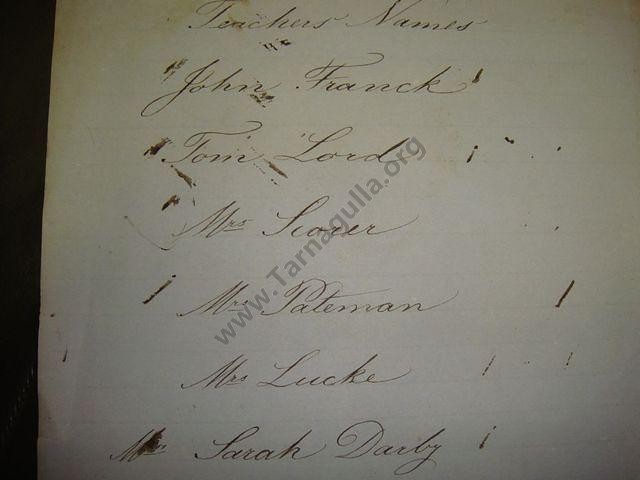 Teachers Names
John Franck
Tom Lord
Mrs Scorer
Mrs Pateman
Mrs Lucke
Mrs Sarah Darby
www.Tarnagulla.org